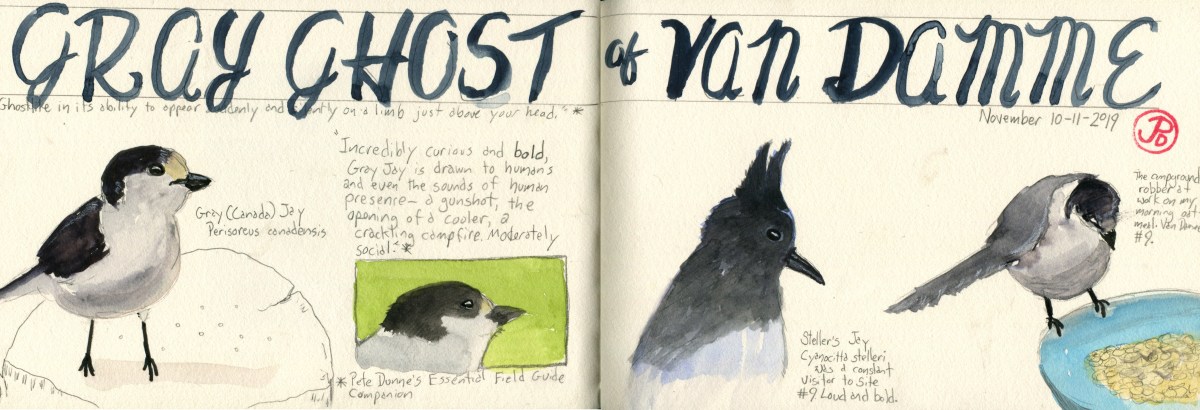 GRAY GHOST of VAN DAMME
Ghostlike in its ability to appear suddenly and silently on a limb just above your head." *
November 10-11-2019
JPD
"Incredibly curious and bold,
Gray Jay is drawn to humans
and even the sounds of human
presence- a gunshot, the
opening of a cooler, a
crackling campfire. Moderately
social." *
Gray (Canada) Jay
Perisoreus canadensis
* Pete Dunne's Essential Field Guide
Companion
Steller's Jay
Cyanocitta stelleri
was a constant
visitor to site
#9 Loud and bold.
The campground
robber at
work on my
morning oat
meal. Van Damme
#9.